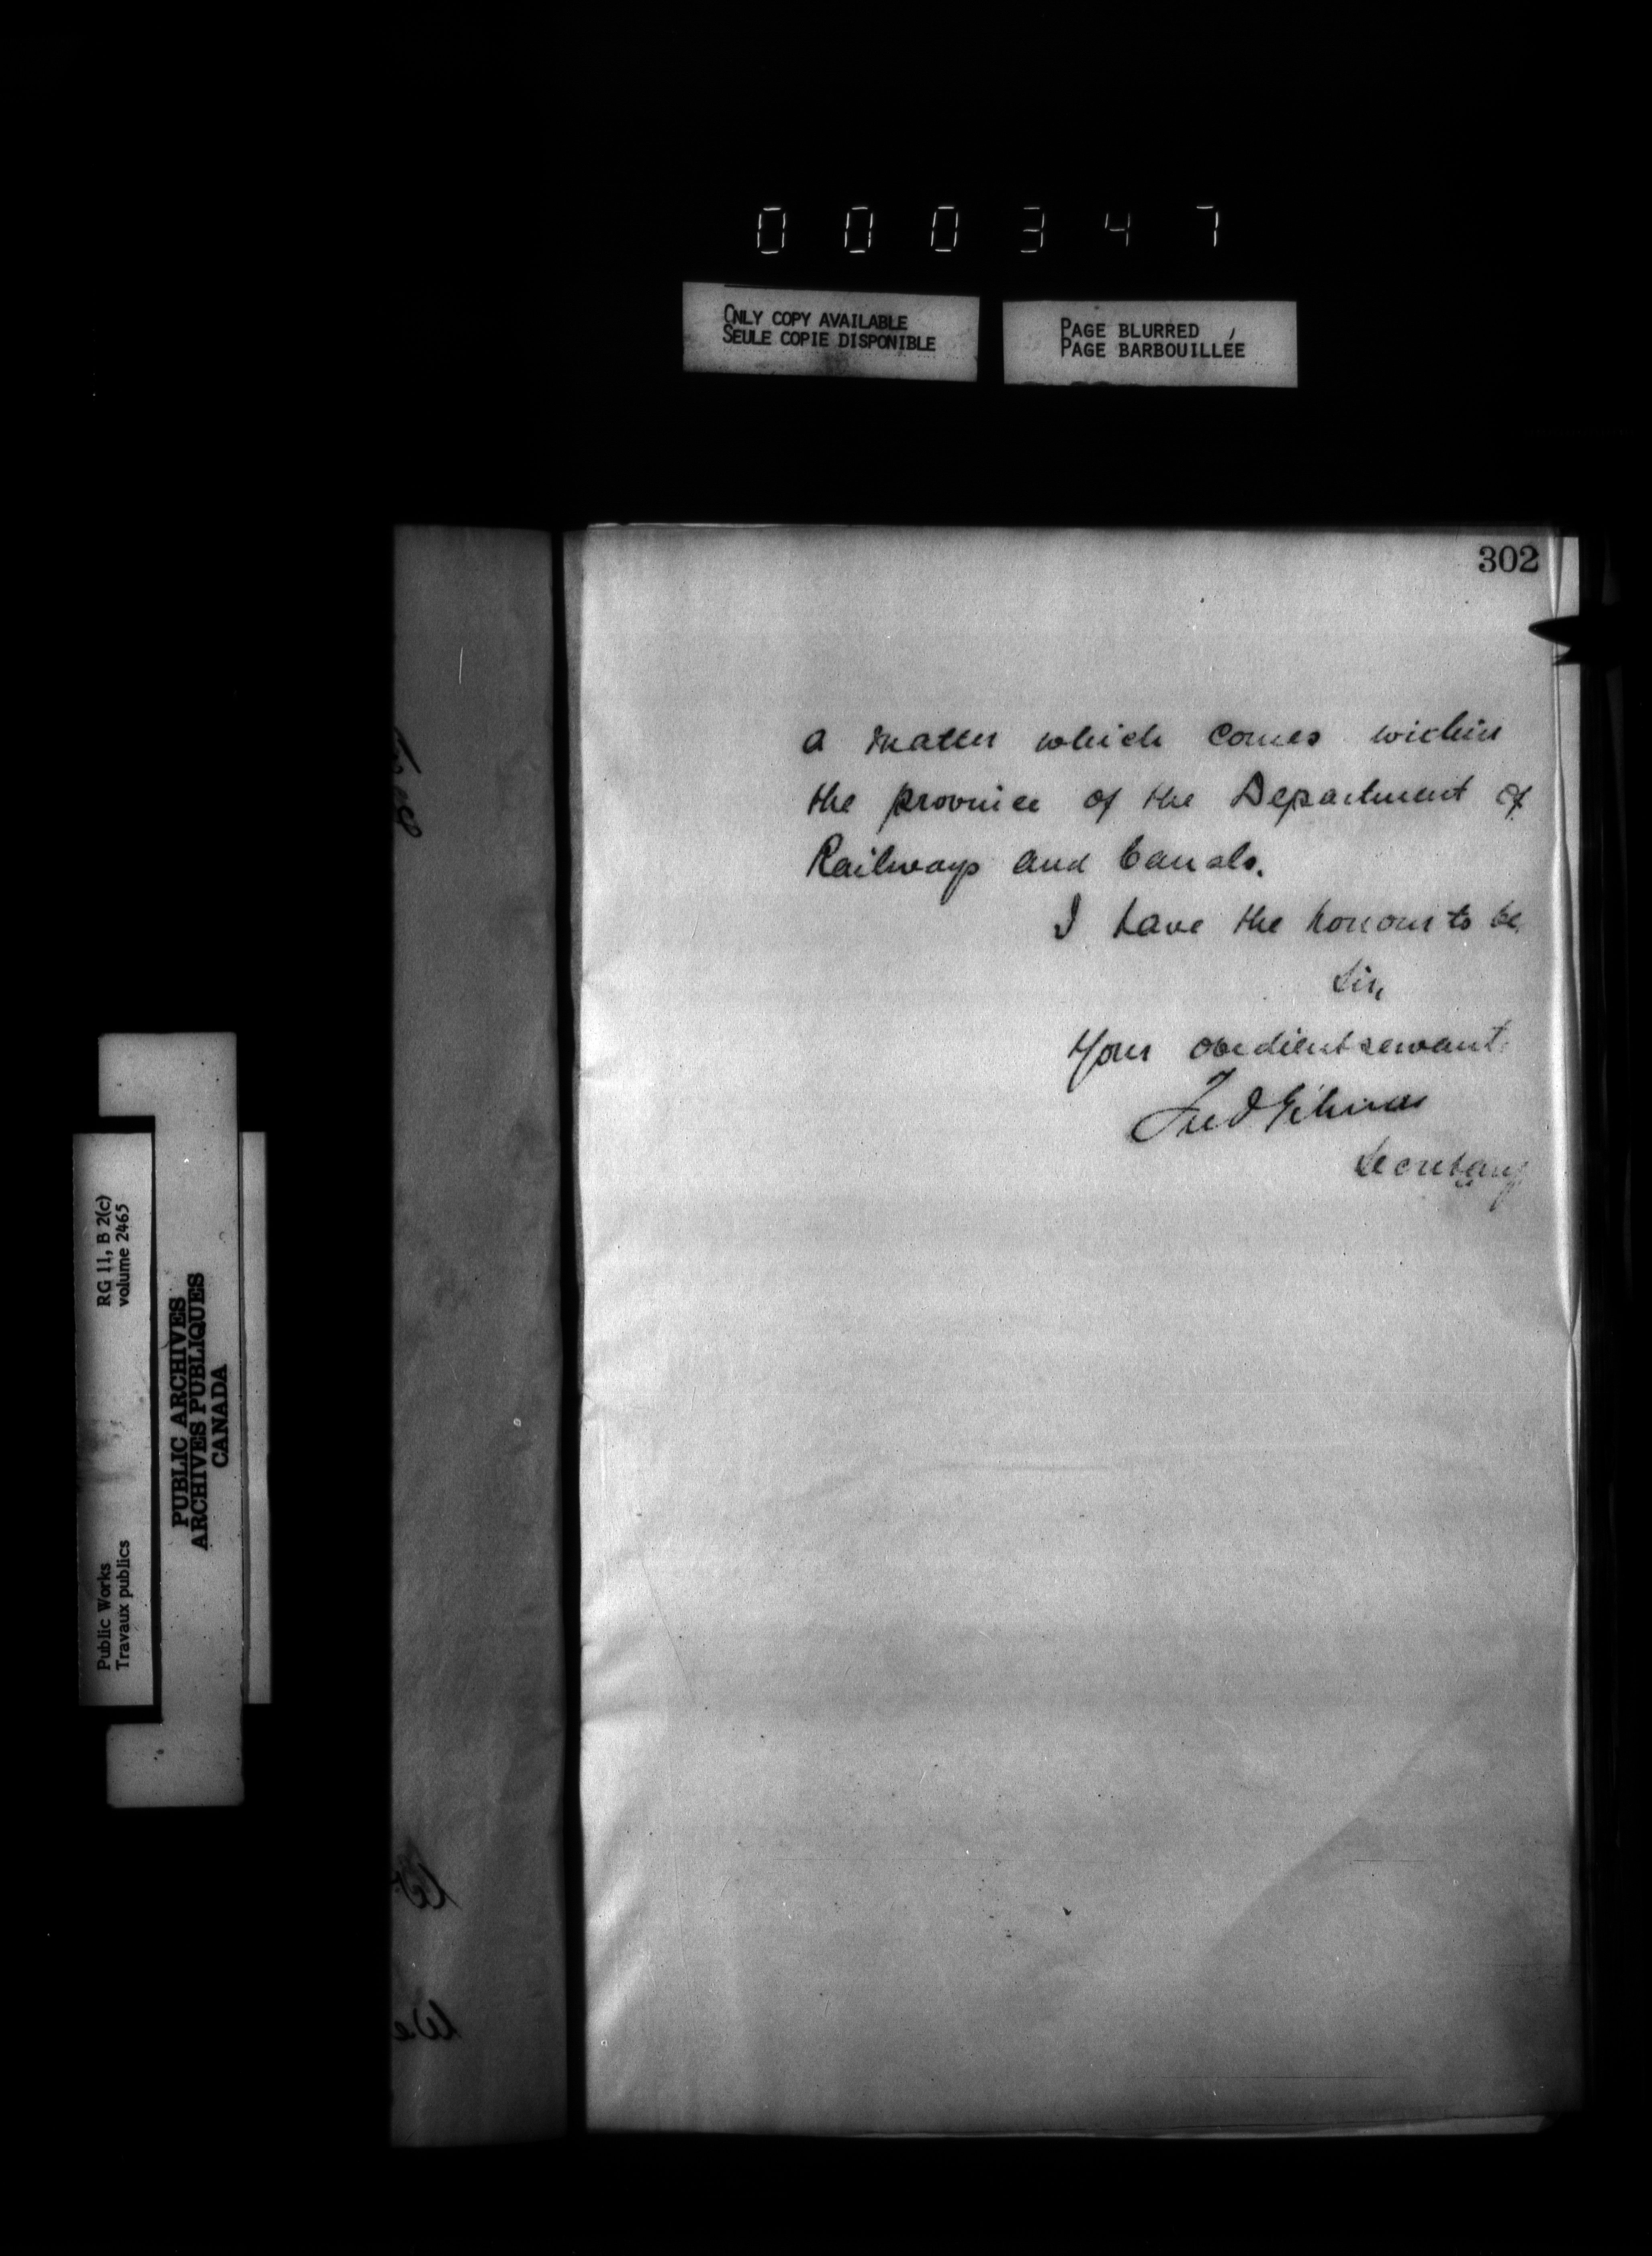 000347
ONLY COPY AVAILABLE
SEULE COPIE DISPONIBLE
PAGE BLURRED
PAGE BARBOUILLÉE
302
a matter which comes within
the province of the Department of
Railways and Canals.
I have the honour to be,
Sir,
Your obedient servant
Secretary
RG 11, B 2(c)
volume 2465
Public Works
Travaux publics
PUBLIC ARCHIVES
ARCHIVES PUBLIQUES
CANADA